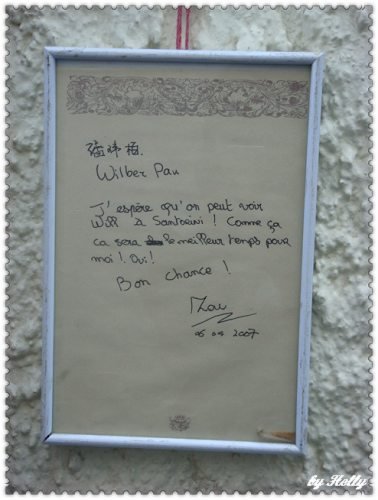 潘瑋柏.
Wilber Pan
J'espère qu'on peut voir
Will à Santorini ! Comme ça
ca sera le meilleur temps pour
moi ! Oui !
Bon chance !
2007
by Holly